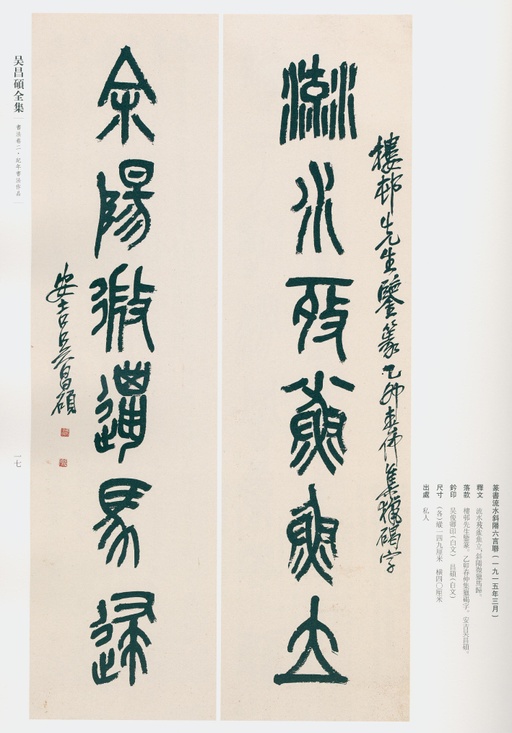 流水魚立
樓邨先生鑒篆乙卯春仲集獵碣字
余陽邋馬歸
安吉吳昌碩
篆書流水斜陽六言聯(一九一五年三月)
釋文 流水魚立,斜陽獵馬歸。
落款 樓邨先生鑒篆。乙卯春仲集獵碣字。安吉吳昌碩。
鈐印 吳俊卿印(白文) 昌碩(白文)
尺寸 (各)縱一四九厘米 橫四〇厘米
出處 私人
吴昌碩全集
書法卷二·紀年書法作品
一七